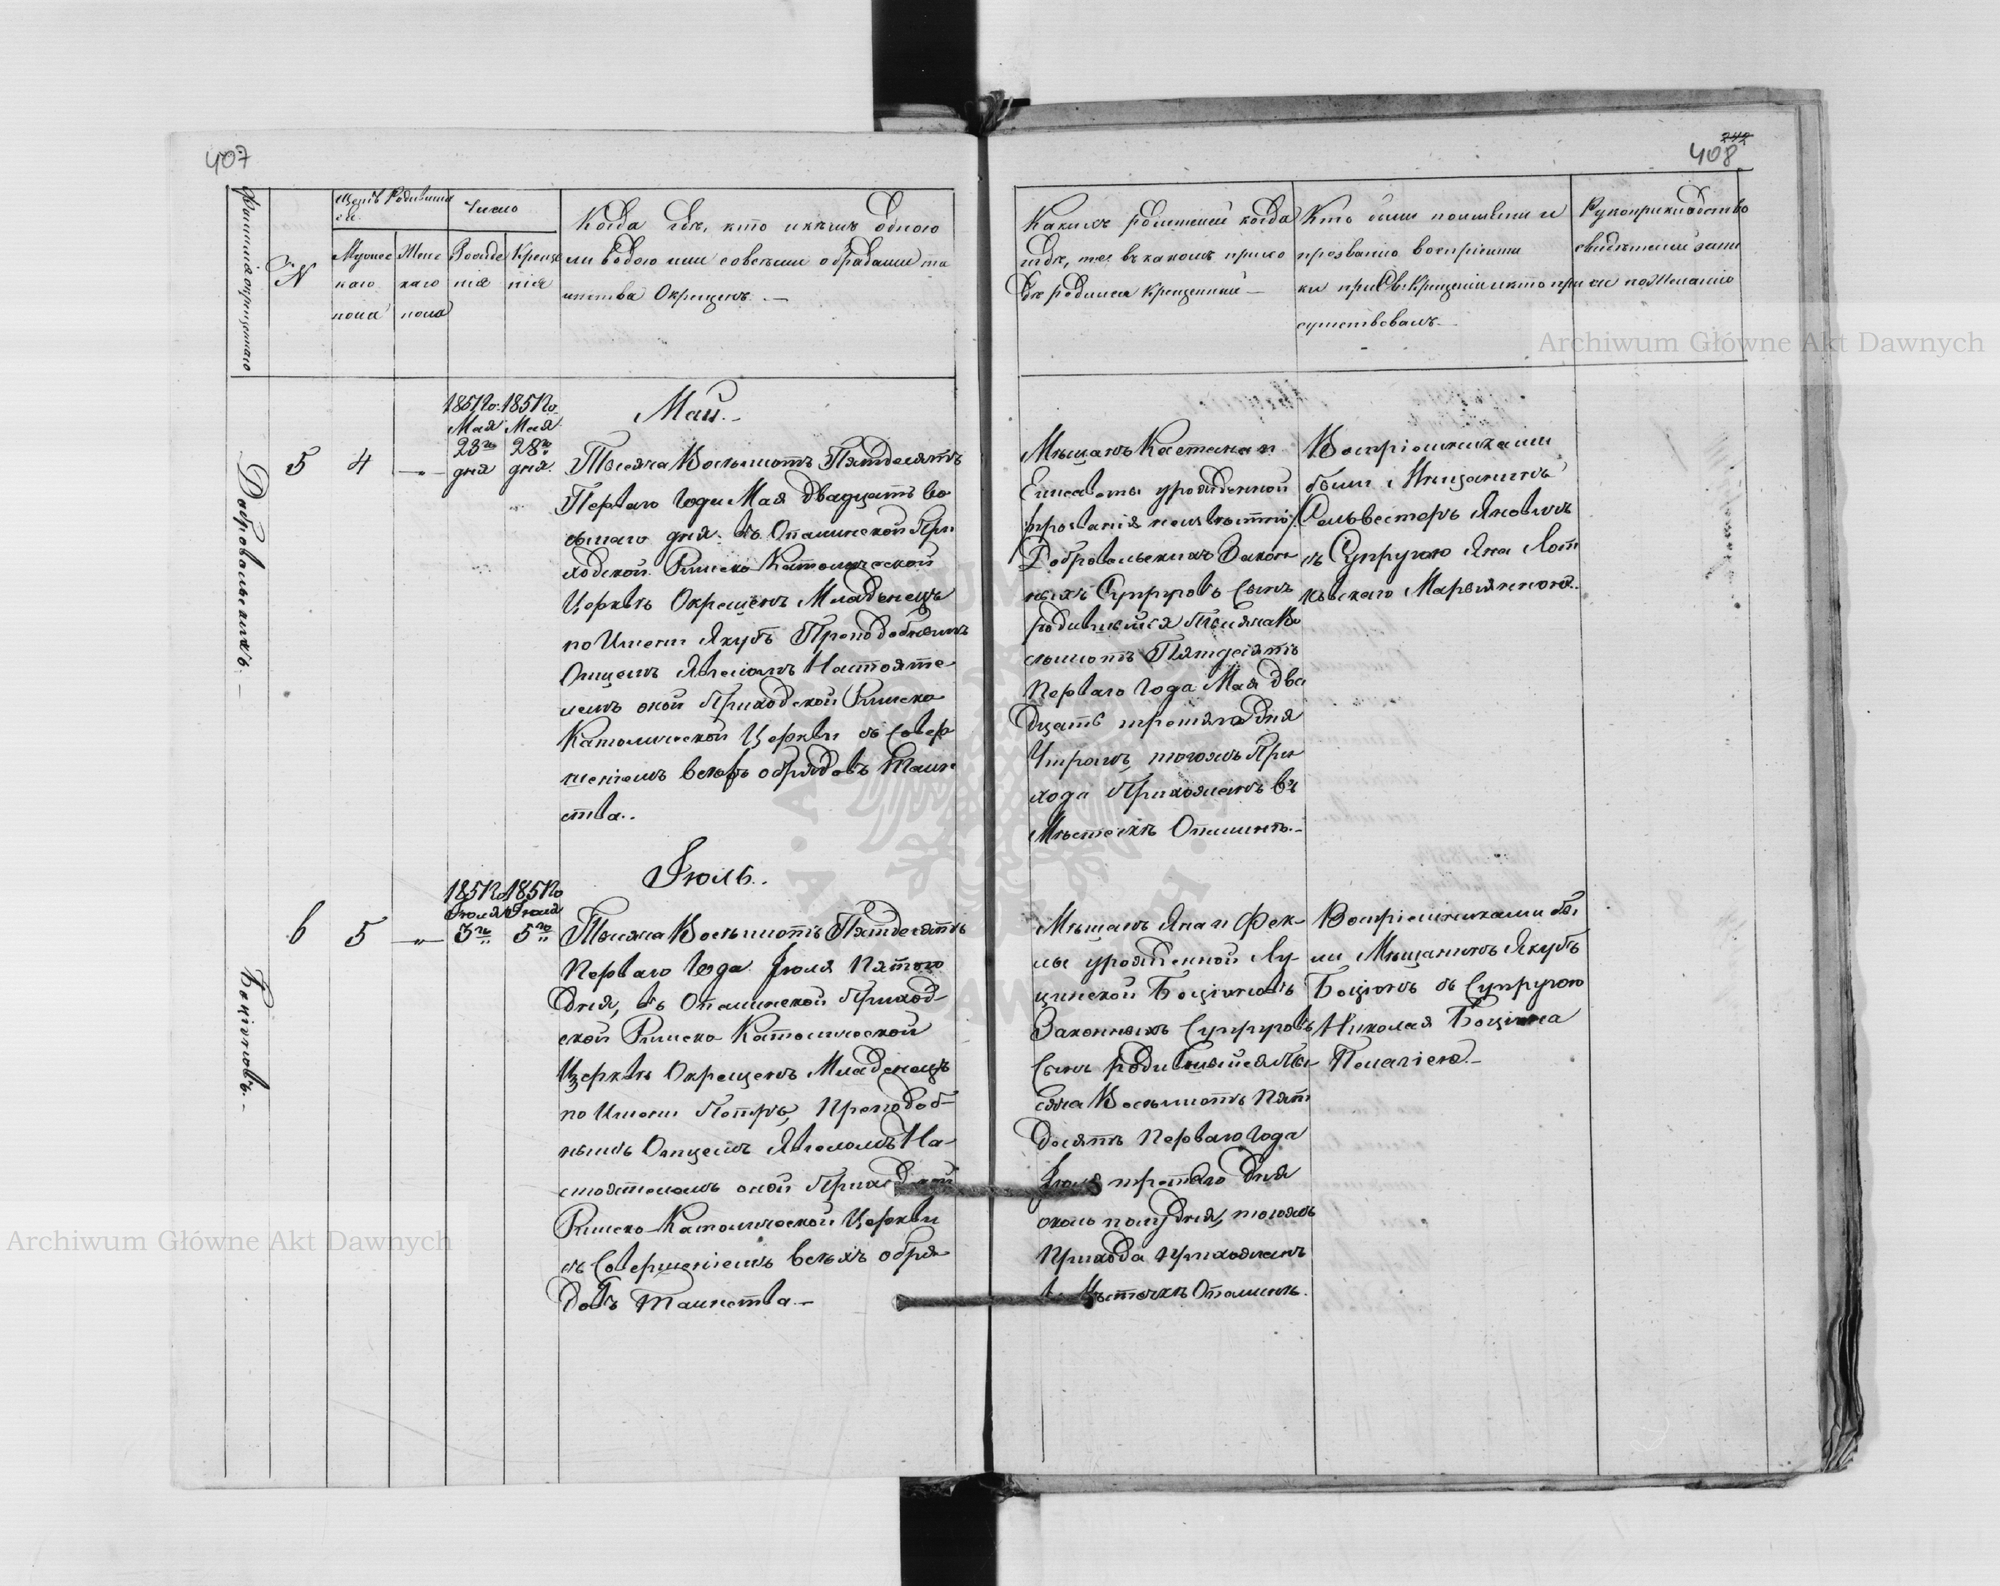 407
Фамилія окрещеннаго
N
Щетъ Родивши
ся.
Мужес
каго
пола
Женс
каго
пола
Число
Рожде
нія
Креще
нія
Когда гдѣ, кто и кѣмъ одною
ли водою или со всѣми обрядами та
инства Окрещенъ. —
Добровольскихъ. —
5
4
— „ —
1851го
Мая
23го
дня
1851го
Мая
28го
дня.
Май. —
Тысяча Восьмготъ Пятдесятъ
Перваго Года Мая двадцать во
сьмаго дня. въ Опалинской При
ходской Римско Католической
Церквѣ Окрещенъ Младенецъ
по Имени Якубъ Преподобнымъ
Отцемъ Настояте
лемъ оной Приходской Римско
Католической Церкви съ Совер
шеніемъ всѣхъ обрядовъ Таин
ства..
Боціоновъ. —
6
5
— „ —
1851го
Іюля
3го
1851го
Іюля
5го
Іюль..
Тысяча Восьмготъ Пятдесятъ
Перваго Года Іюля Пятого
Дня, въ Опалинской Приход-
ской Римско Католической
Церквѣ Окрещенъ Младенецъ
по Имени Петръ, Преподоб-
нымъ Отцемъ На-
стоятелемъ оной Приходской
Римско Католической Церкви
съ Совершеніемъ всѣхъ обря
довъ Таинства. —
408
Какихъ родителей когда
гдѣ, и въ какомъ прихо
дѣ родился Крещенный —
Кто были по имени и
прозванію воспріемни
ки при Св. Крещеніи и кто при
сутствовалъ. —
Рукоприкладство
свидѣтелей запи
си по Желанію
Мѣщанъ Каетана и
Елисаветы урожденной
прозванія неизвѣстной
Добровольскихъ Закон
ныхъ Супруговъ Сынъ
родившійся Тысяча Во
сьмготъ Пятдесятъ
Перваго Года Мая два
дцать третяго Дня
Утромъ, тогожъ При
хода Прихожанъ въ
Мѣстечкѣ Опалинѣ. —
Воспріемниками
были Мѣщанинъ
Сельвестеръ
съ Супругою Яна
Марьянною.
Мѣщанъ Яна и Фек-
лы урожденной Лу-
цинской Боціоновъ
Законныхъ Супруговъ
Сынъ родившійся Ты-
сяча Восьмготъ Пят
десятъ Перваго Года
Іюля третяго Дня
около полудня, тогожъ
Прихода Прихожанъ
въ Мѣстечкѣ Опалинѣ.
Воспріемниками бы
ли Мѣщанинъ Якубъ
Боціонъ съ Супругою
Николая Боціона
Пелагіею. —
Archiwum Główne Akt Dawnych
Archiwum Główne Akt Dawnych